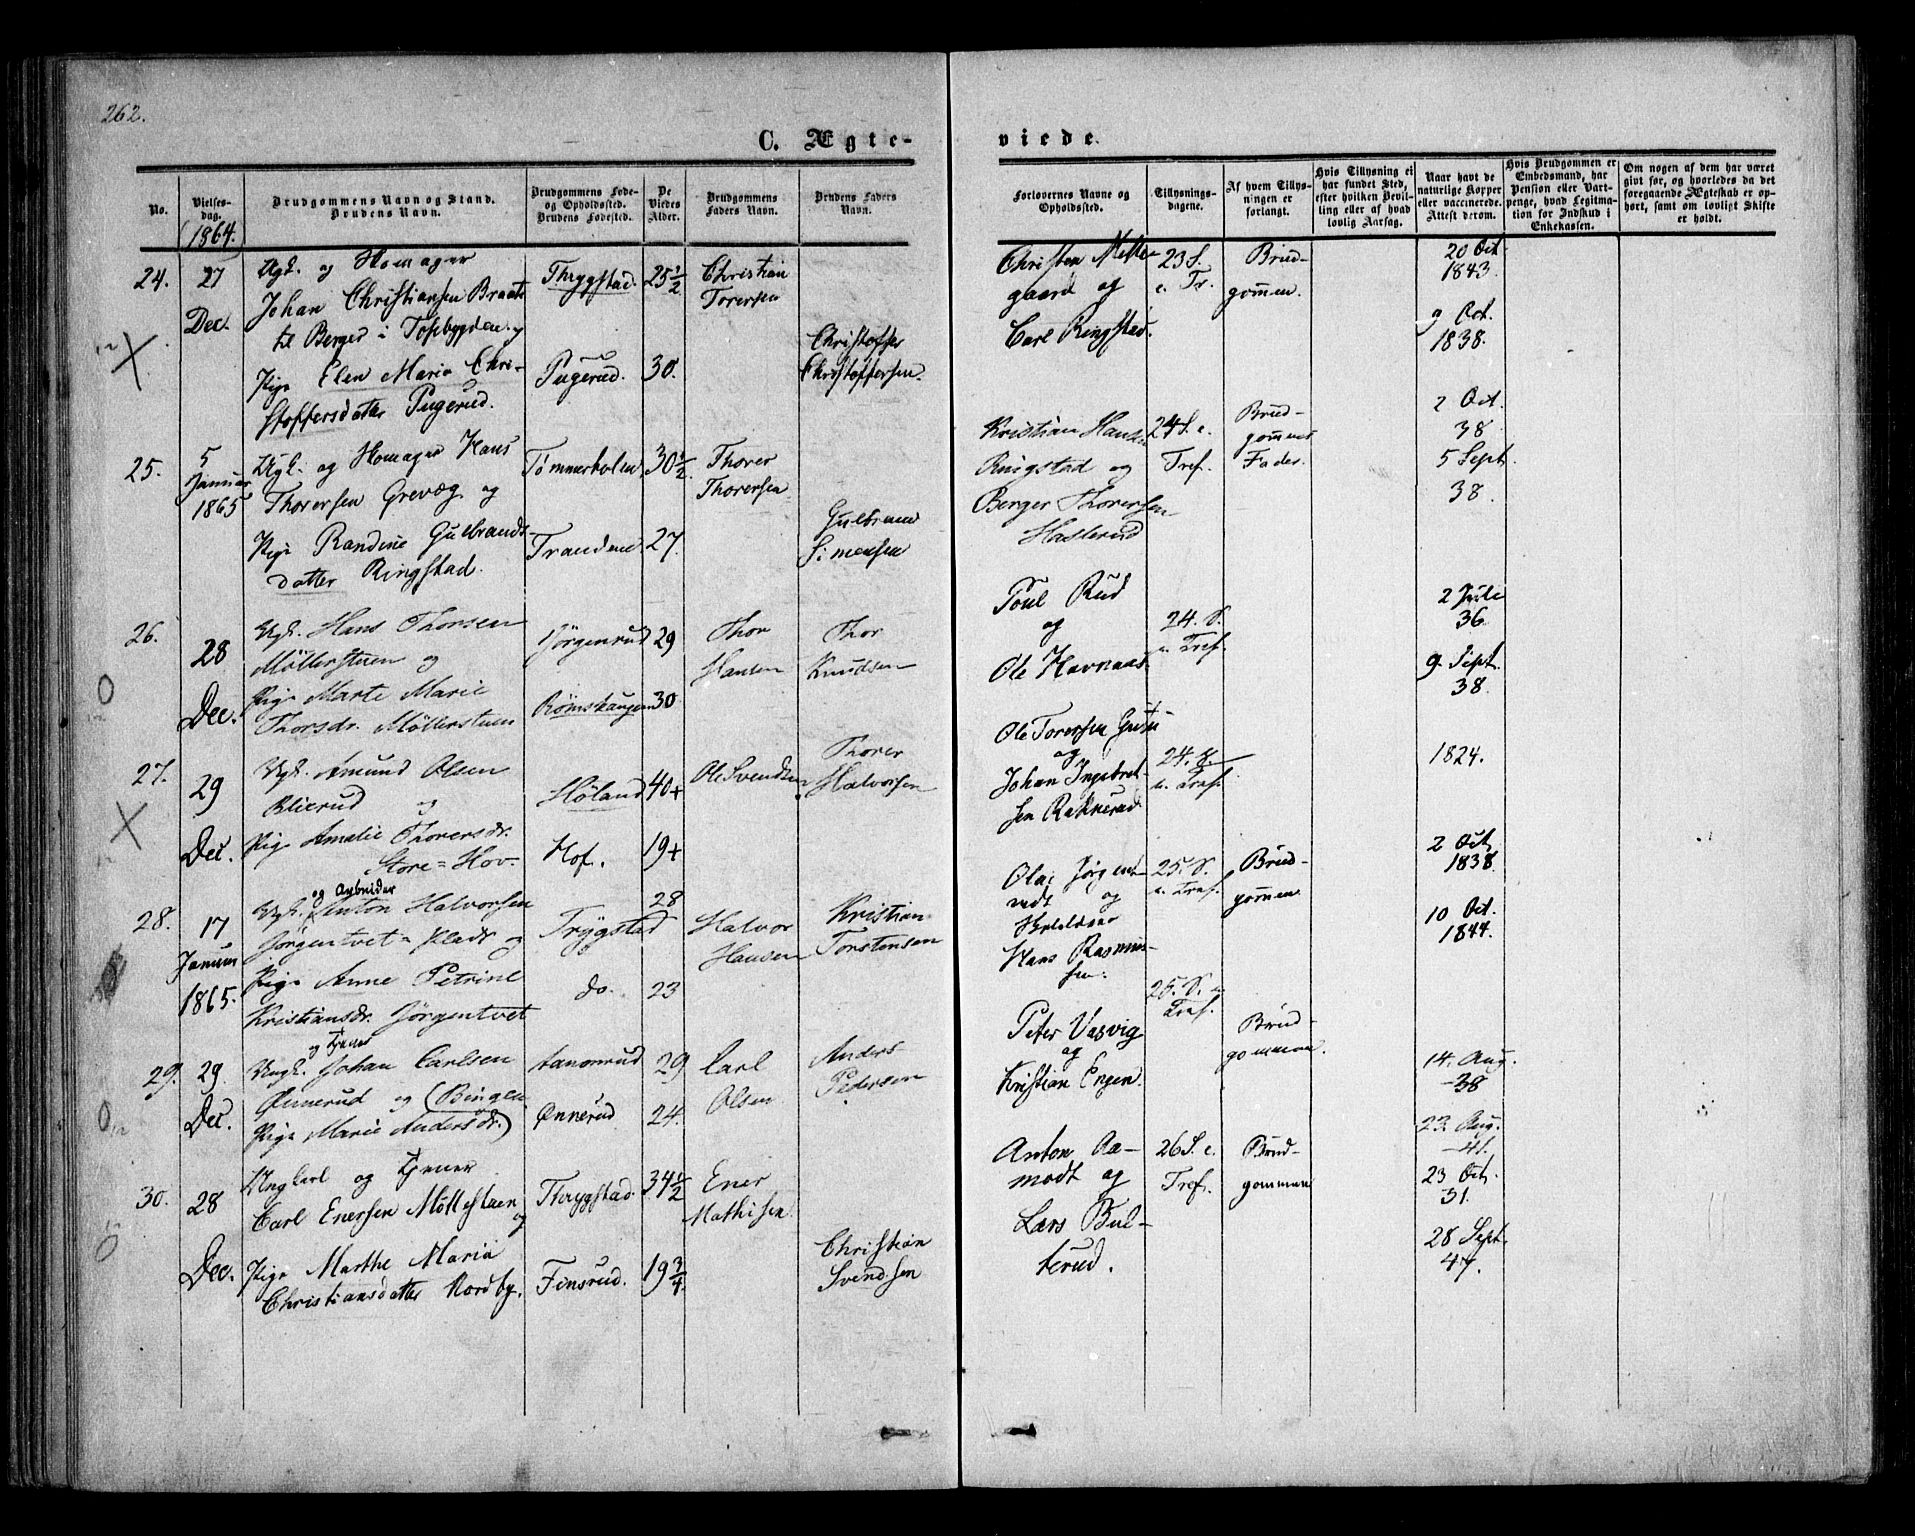 262.
C. Ægte-
viede.
No.
Vielses-
dag.
(1864.)
Brudgommens Navn og Stand.
Brudens Navn.
Brudgommens Føde-
og Opholdssted.
Brudens Fødested.
De
Viedes
Alder.
Brudgommens
Faders Navn.
Brudens Faders
Navn.
Forlovernes Navne og
Opholdssted.
Tillysnings-
dagene.
Af hvem Tillys-
ningen er
forlangt.
Hvis Tillysning ei
har fundet Sted,
efter hvilken Bevil-
ling eller af hvad
lovlig Aarsag.
Naar havt de
naturlige Kopper
eller vaccinerede.
Attest derom.
Hvis Brudgommen er
Embedsmand, har
Pension eller Vart-
penge, hvad Legitima-
tion for Indskud i
Enkekassen.
Om nogen af dem har været
gift før, og hvorledes da det
foregaaende Ægteskab er op-
hørt, samt om lovligt Skifte
er holdt.
24.
27
Dec.
Ugk. og
Johan Christiansen Braate
til Berger i
Pige Elen Maria Chri-
stoffersdatter Pugerud.
Thrygstad.
Pugerud.
25 1/2
30.
Christian
Torersen
Christoffer
Christoffersen.
Christen Melle-
gaard og
Carl Ringstad.
23 S.
e. Tr.
Brud-
gommen.
20 Oct
1843.
9 Oct.
1838.
25.
5
Januar
1865
Ugk. og Hans
Thorersen Grevæg og
Pige Randine Gulbrands-
datter Ringstad.
Tømmerholen
Tranden
30 1/2
27.
Thorer
Thorersen
Gulbrand
Simensen
Kristian Hansen
Ringstad og
Berger Thorersen
Haslerud
24 S. e.
Tref.
Brud-
gommens
Fader.
2 Oct.
38.
5 Sept.
38.
26.
28
Dec.
Ugk. Hans Thorsen
Möllerstuen og
Pige Marte Marie
Thorsdr. Möllerstuen
Jörgenrud
Römskaugen
29
30
Thor
Hansen
Thor
Knudsen
Poul Rud
og
Ole Havnaas
24. S.
e. Tref.
2 Juli
36.
9. Sept.
38.
27.
29
Dec.
Ugk. Amund Olsen
Blierud og
Pige Amalie Thorersdr.
Store=Hov-
Höland
Hof.
40+
19+
Ole Svendsen
Thorer
Halvorsen
Ole Torersen
og
Johan Ingebret-
sen Raknerud
24. S.
e. Tref.
1824.
28.
17
Januar
1865.
og Arbeider
Ugk. Anton Halvorsen
Jörgentvet= Plads og
Pige Anne Petrine
Kristiansdr. Jörgentvet
Trygstad
do.
28
23
Halvor
Hansen
Kristian
Torstensen
Olai Jörgent-
vedt og
Hans Rasmus-
sen.
25. S.
e. Tref.
Brud-
gommen
2 Oct.
1838.
10 Oct.
1844.
29.
29
Dec.
og Tjener
Ungk. Johan Carlsen
Önnerud og (Bingen
Pige Marie Andersdr.)
Önnerud
29
24.
Carl
Olsen
Anders
Pedersen
Peter Vasvig
og
Kristian Engen
25. S. e
Tref.
Brud-
gommen.
14. Aug.
-38
23. Aug.
-41.
30.
28
Dec.
Ungkarl og Tjener
Carl Enersen Möllestuen og
Pige Marthe Maria
Christiansdatter Nordby.
Thrygstad
Finsrud.
34 1/2
19 3/4
Ener
Mathisen
Christian
Svendsen
Anton Aa-
modt og
Lars Bul-
terud.
26 S. e.
Tref.
Brud-
gommen
23 Oct.
31.
28 Sept.
47.